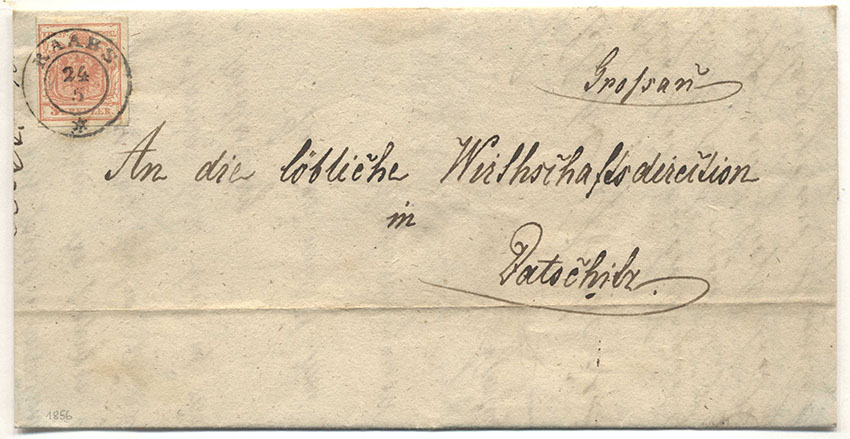 RAABS
24
5
Großau
An die löbliche Wirthschaftsdirection
in
Datschitz.
1856